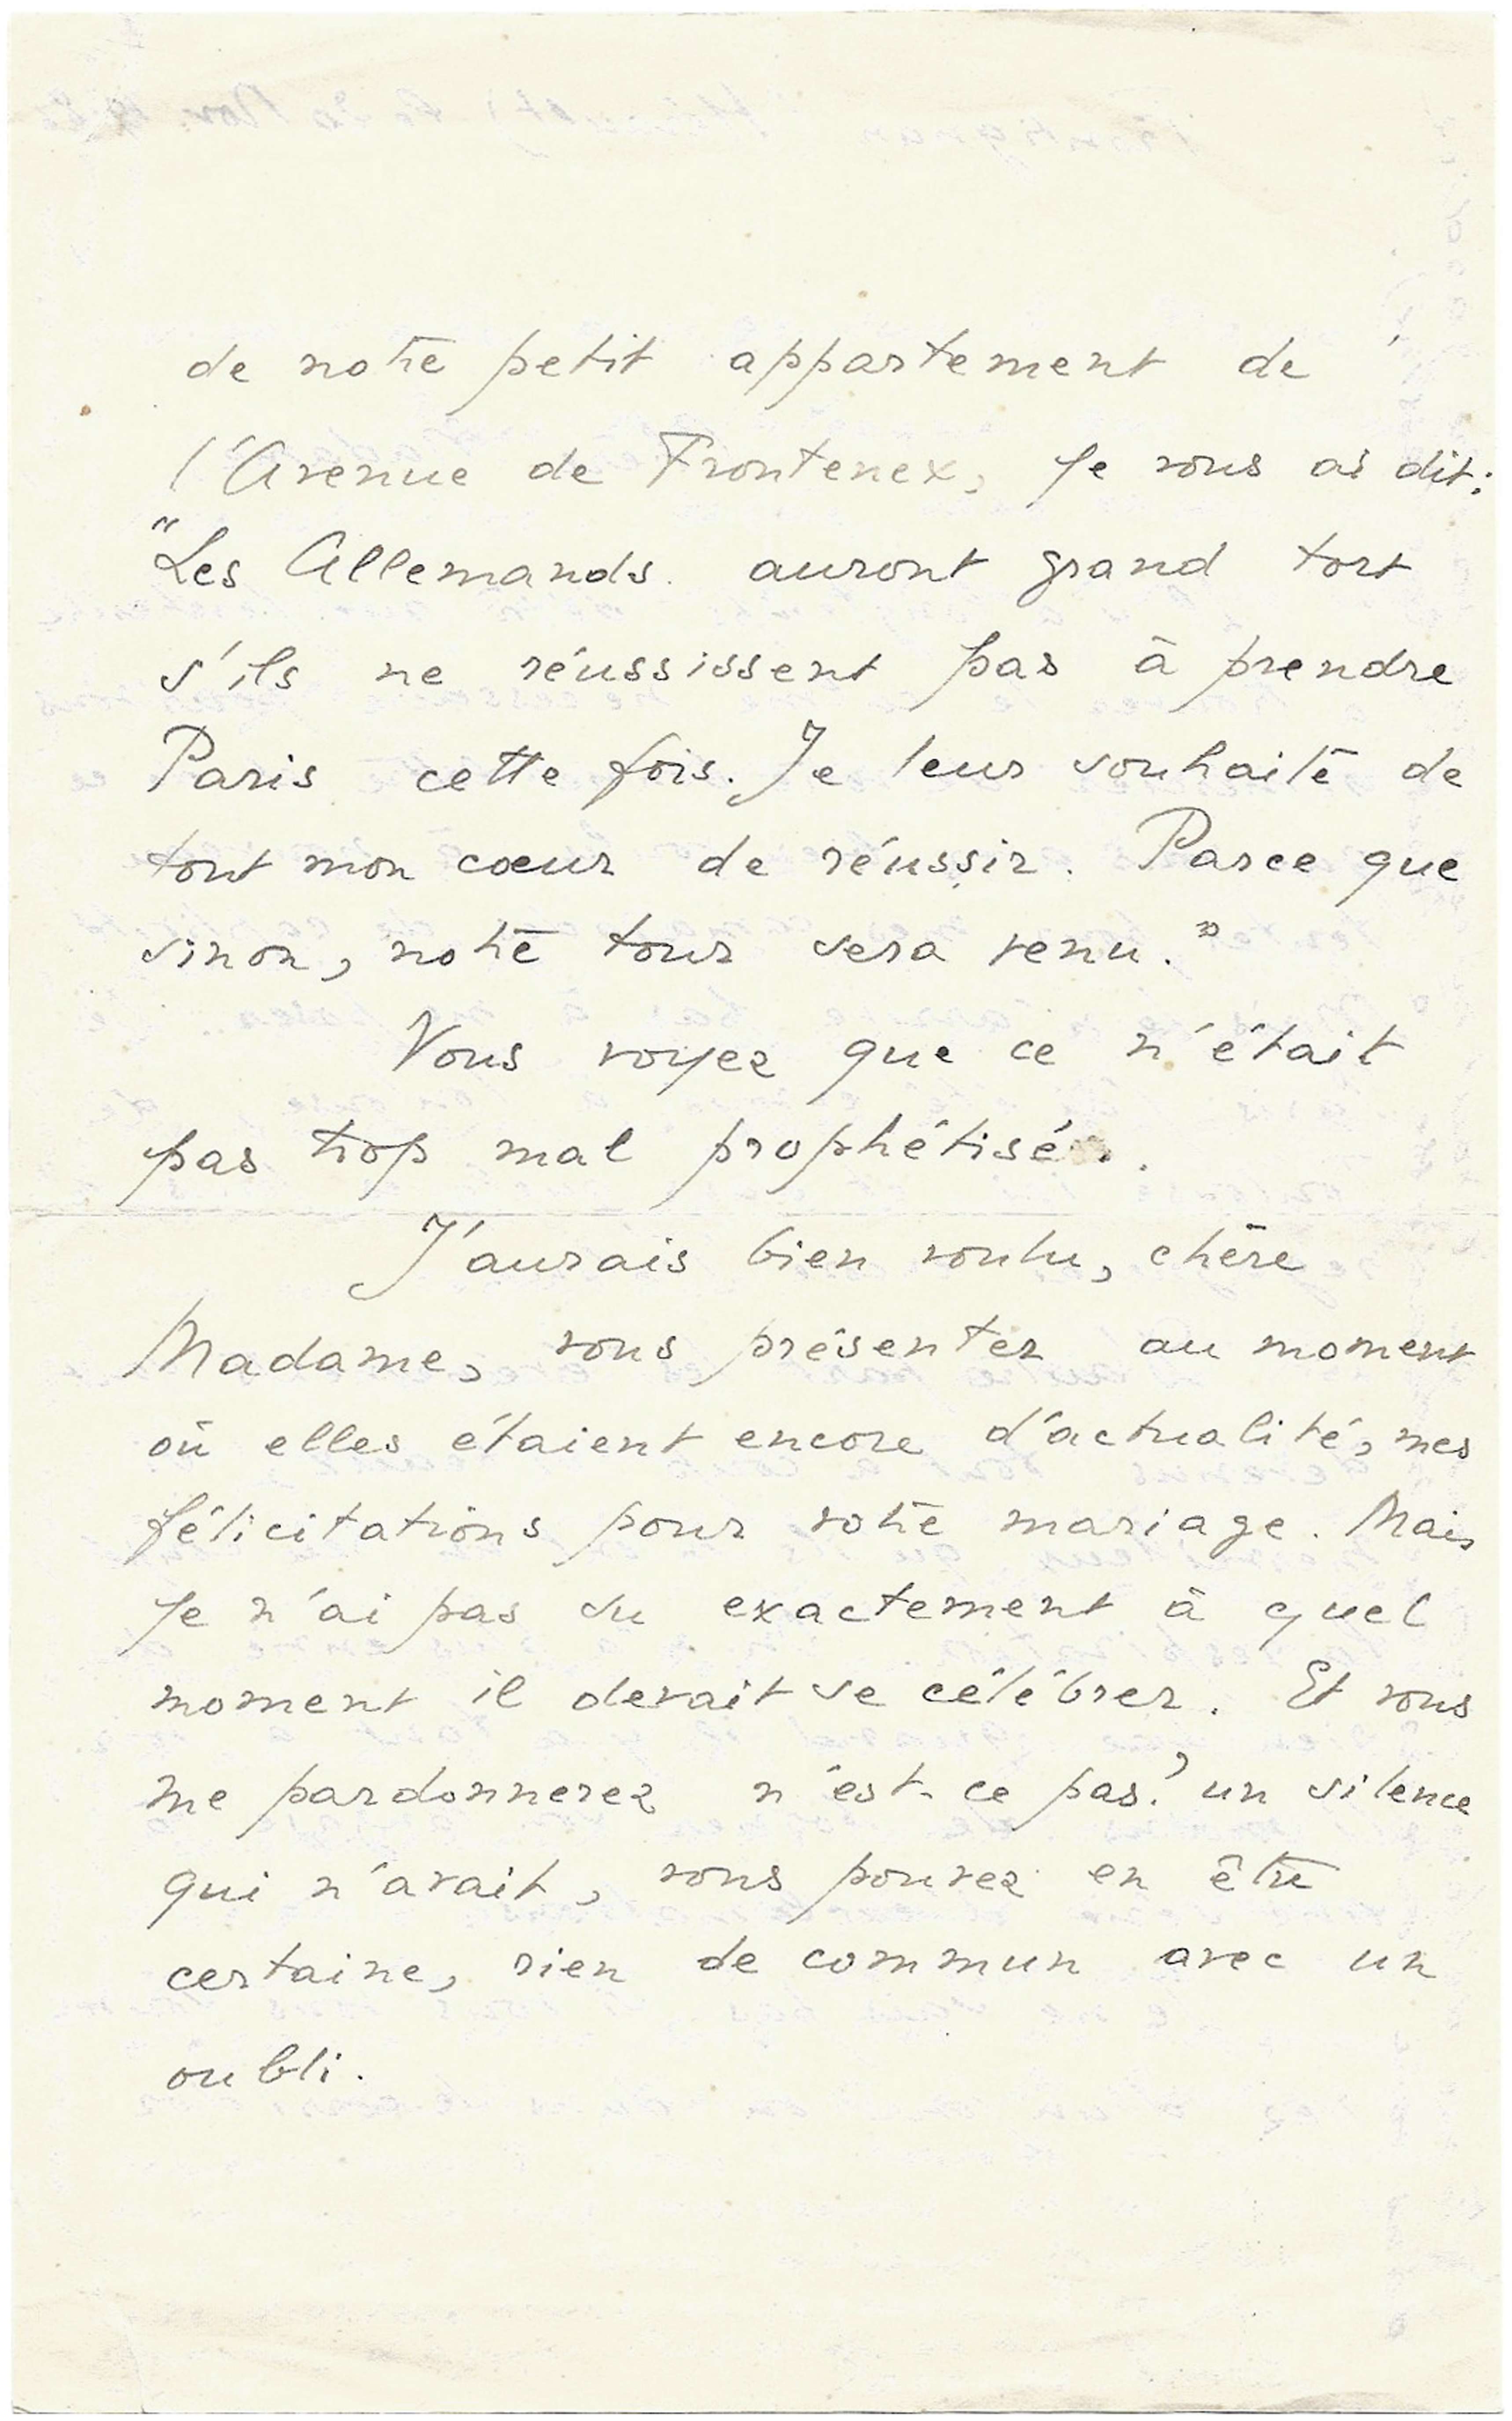 de notre petit appartement de
l'Avenue de Frontenex, je vous ai dit:
"Les Allemands auront grand tort
s'ils ne réussissent pas à prendre
Paris cette fois. Je leur souhaite de
tout mon cœur de réussir. Parce que
sinon, notre tour sera venu."
Vous voyez que ce n'était
pas trop mal prophétisé.
J'aurais bien voulu, chère
Madame, vous présenter au moment
où elles étaient encore d'actualité, mes
félicitations pour votre mariage. Mais
je n'ai pas su exactement à quel
moment il devait se célébrer. Et vous
me pardonnerez n'est-ce pas? un silence
qui n'avait, vous pouvez en être
certaine, rien de commun avec un
oubli.